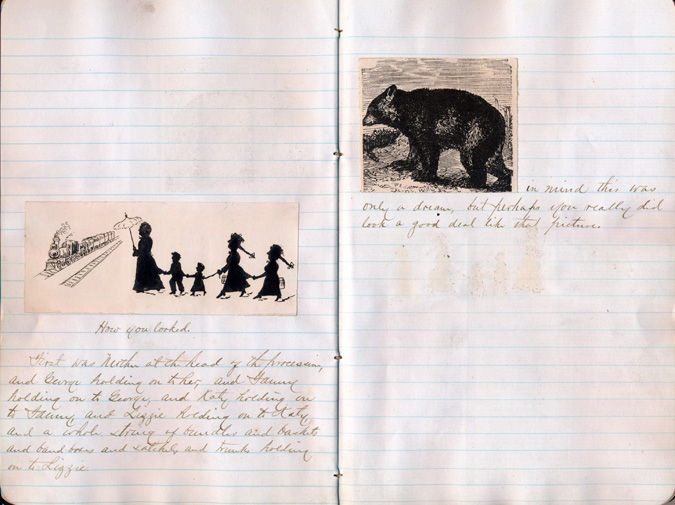 How you looked.
First was Mother at the head of the procession,
and George holding on to her, and Fanny
holding on to George, and Katy holding on
to Fanny, and Lizzie holding on to Katy,
and a whole string of bundles and baskets
and band boxes and satchels and trunks holding
on to Lizzie
in mind this was
only a dream, but perhaps you really did
look a good deal like that picture.